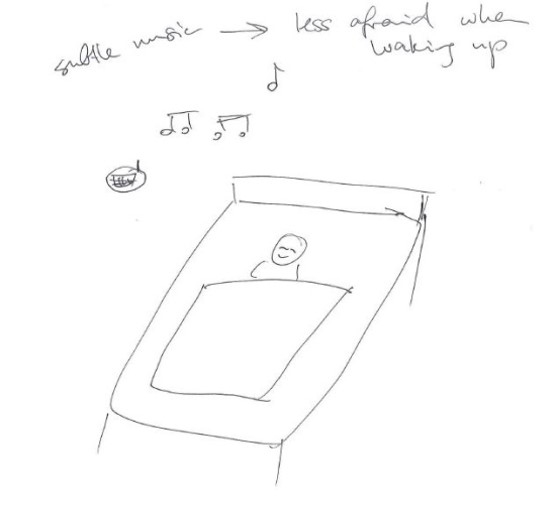 subtle music → less afraid when
waking up